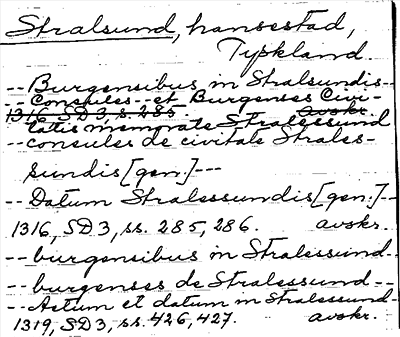 Stralsund, hansestad,
Tyskland.
-- Burgensibus in Stralsundis--
-- Consules -- et Burgenses Civi-
1316 SD 3, s. 285. avskr.
tatis memorate Stralessund
-- consules de civitate Strales-
sundis [gen.] ---
-- Datum Stralessundis [gen.]--
1316, SD 3, ss. 285, 286. avskr.
-- burgensibus in Stralessund --
-- burgenses de Stralessund --
-- Actum et datum in Stralessund-
1319, SD 3, ss. 426, 427. avskr.